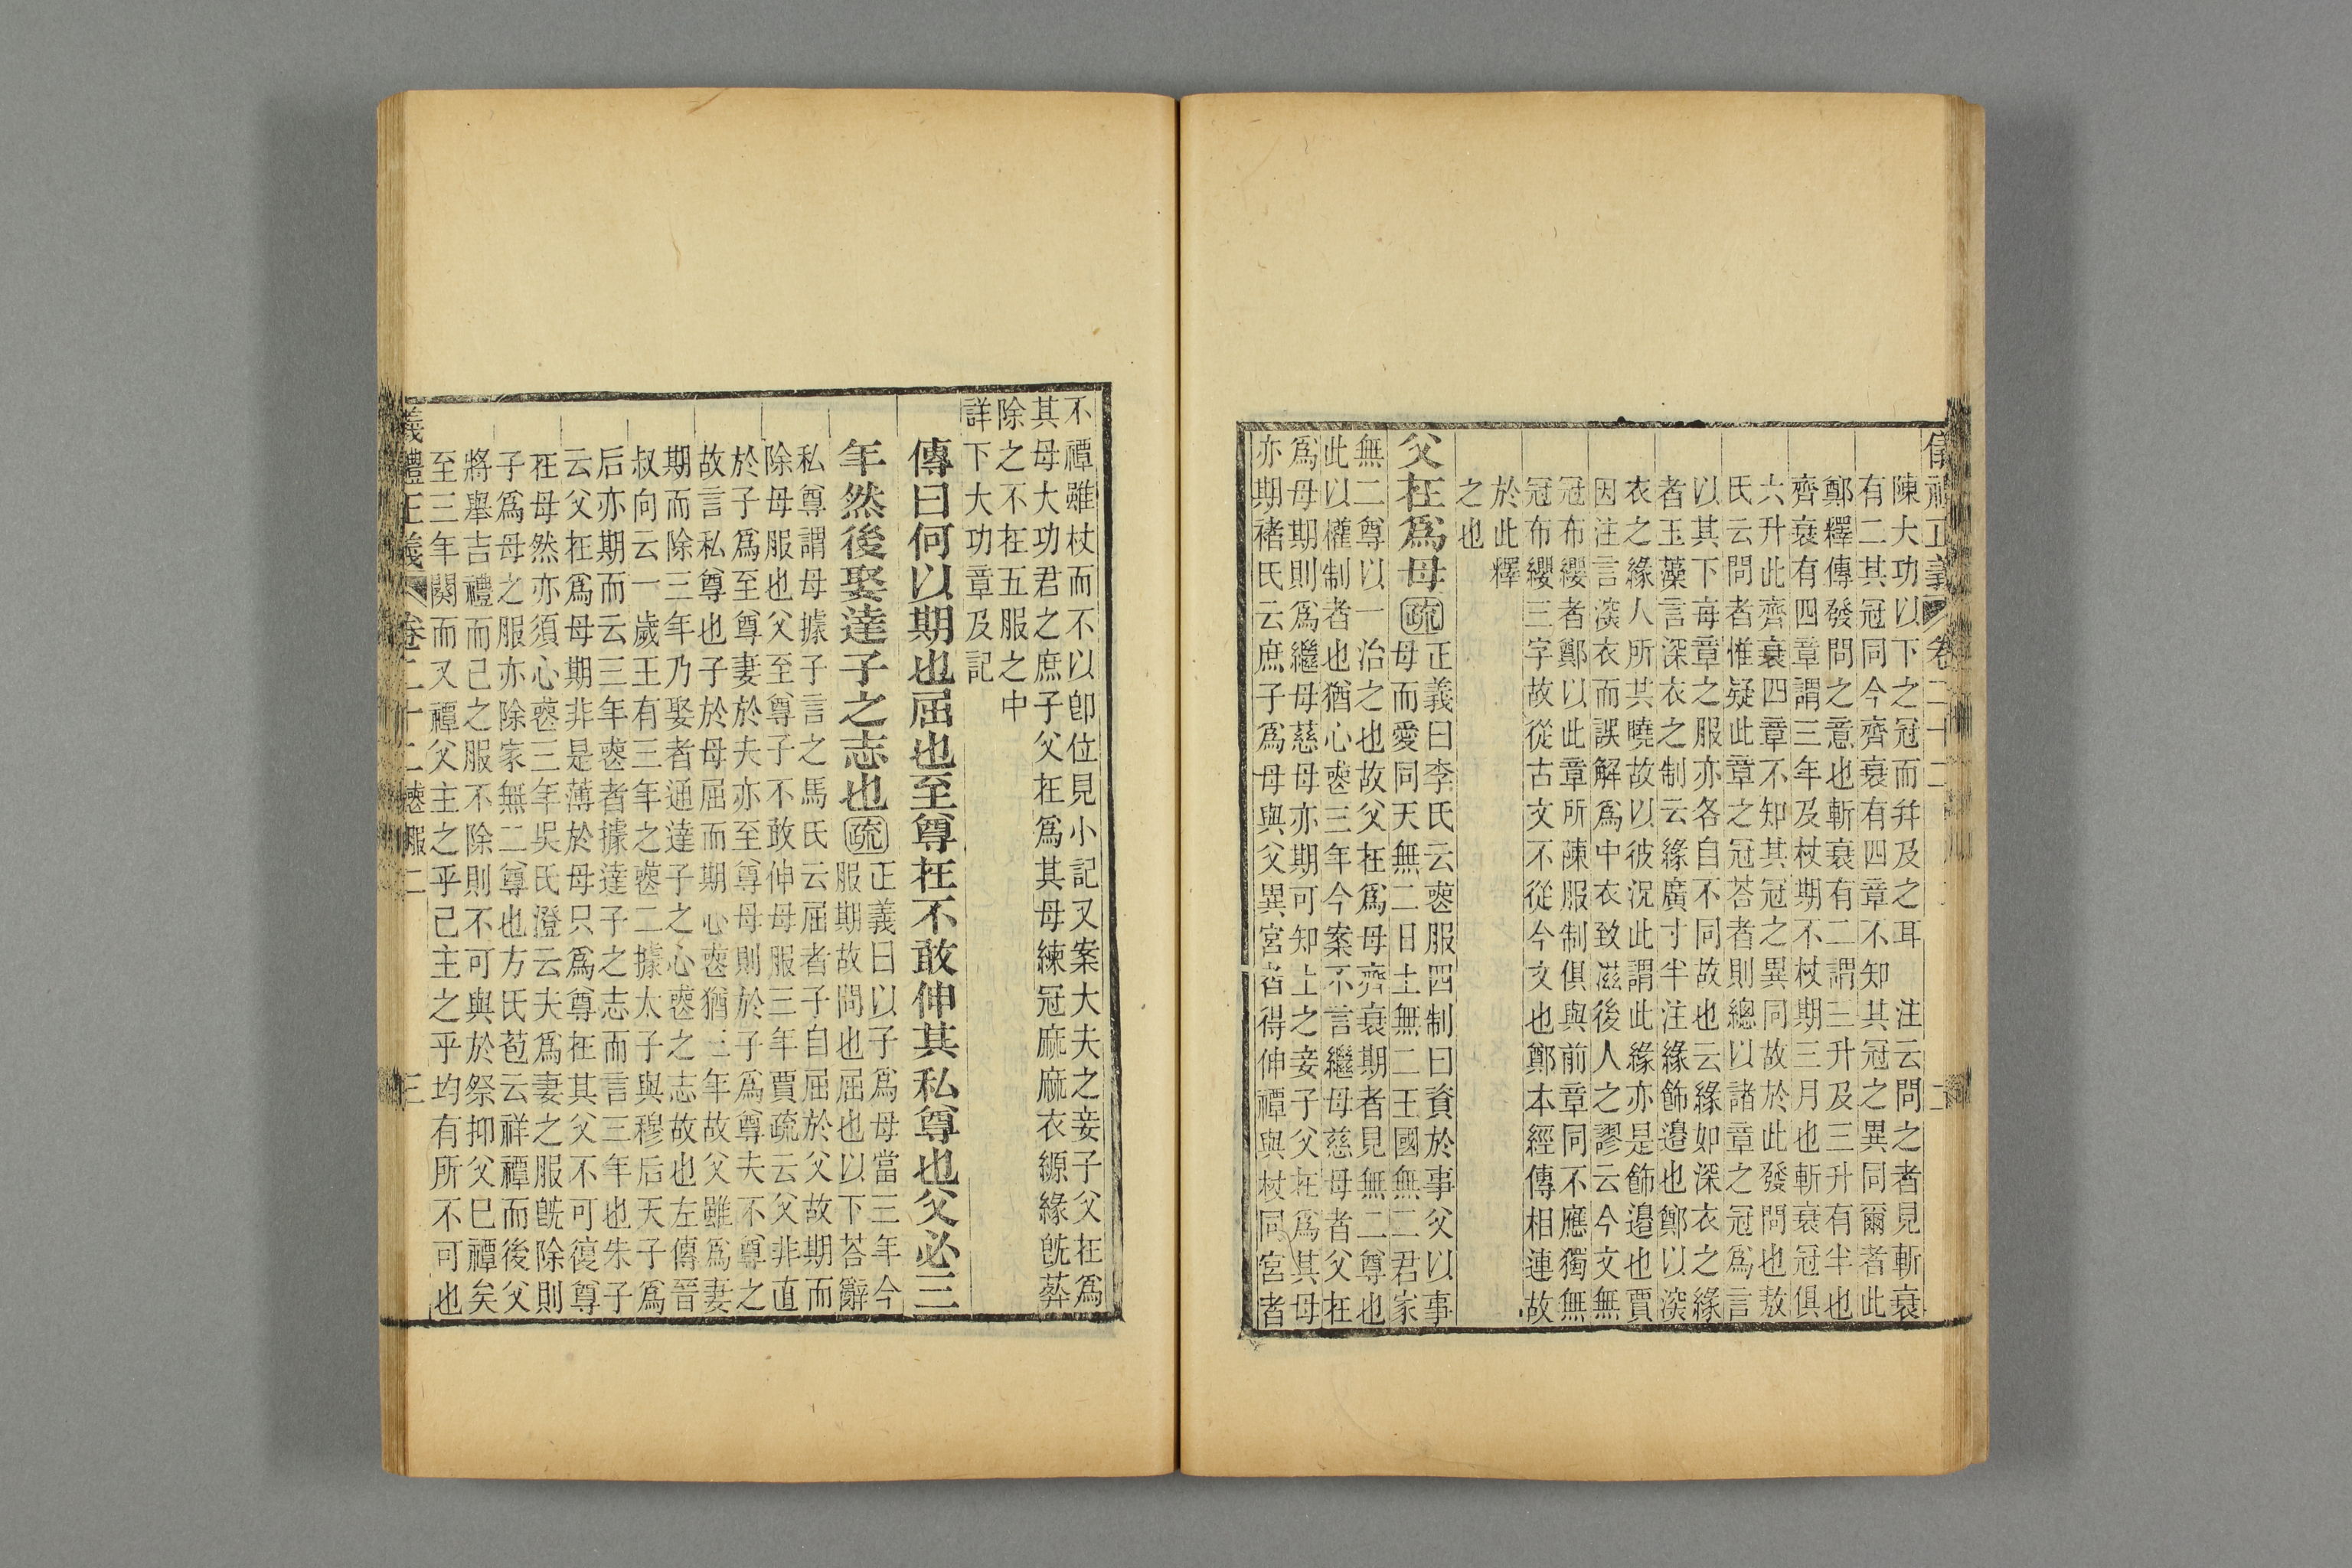 儀禮正義 卷二十二 二
陳大功以下之冠而幷及之耳　注云問之者見斬衰
有二其冠同今齊衰有四章不知其冠之異同爾者此
鄭釋傳發問之意也斬衰有二謂三升及三升有半也
齊衰有四章謂三年及杖期不杖期三月也斬衰冠俱
六升此齊衰四章不知其冠之異同故於此發問也敖
氏云問者惟疑此章之冠荅者則總以諸章之冠爲言
以其下每章之服亦各自不同故也云緣如深衣之緣
者玉藻言深衣之制云緣廣寸半注緣飾邉也鄭以深
衣之緣人所其曉故以彼況此謂此緣亦是飾邉也賈
因注言深衣而誤解爲中衣致滋後人之謬云今文無
冠布纓者鄭以此章所陳服制俱與前章同不應獨無
冠布纓三字故從古文不從今文也鄭本經傳相連故
於此釋
之也
父在爲母疏正義曰李氏云喪服四制曰資於事父以事
母而愛同天無二日土無二王國無二君家
無二尊以一治之也故父在爲母齊衰期者見無二尊也
此以權制者也猶心喪三年今案不言繼母慈母者父在
爲母期則爲繼母慈母亦期可知士之妾子父在爲其母
亦期褚氏云庶子爲母與父異宮者得伸禫與杖同宮者
不禫雖杖而不以卽位見小記又案大夫之妾子父在爲
其母大功君之庶子父在爲其母練冠麻麻衣縓緣旣葬
除之不在五服之中
詳下大功章及記
傳曰何以期也屈也至尊在不敢伸其私尊也父必三
年然後娶達子之志也疏正義曰以子爲母當三年今
服期故問也屈也以下荅辭
私尊謂母據子言之馬氏云屈者子自屈於父故期而
除母服也父至尊子不敢伸母服三年賈疏云父非直
於子爲至尊妻於夫亦至尊母則於子爲尊夫不尊之
故言私尊也子於母屈而期心喪猶三年故父雖爲妻
期而除三年乃娶者通達子之心喪之志故也左傳晉
叔向云一歲王有三年之喪二據太子與穆后天子爲
后亦期而云三年喪者據達子之志而言三年也朱子
云父在爲母期非是薄於母只爲尊在其父不可復尊
在母然亦須心喪三年吳氏澄云夫爲妻之服旣除則
子爲母之服亦除家無二尊也方氏苞云祥禫而後父
將舉吉禮而己之服不除則不可與於祭抑父巳禫矣
至三年闋而又禫父主之乎已主之乎均有所不可也
儀禮正義 卷二十二 喪服二 三